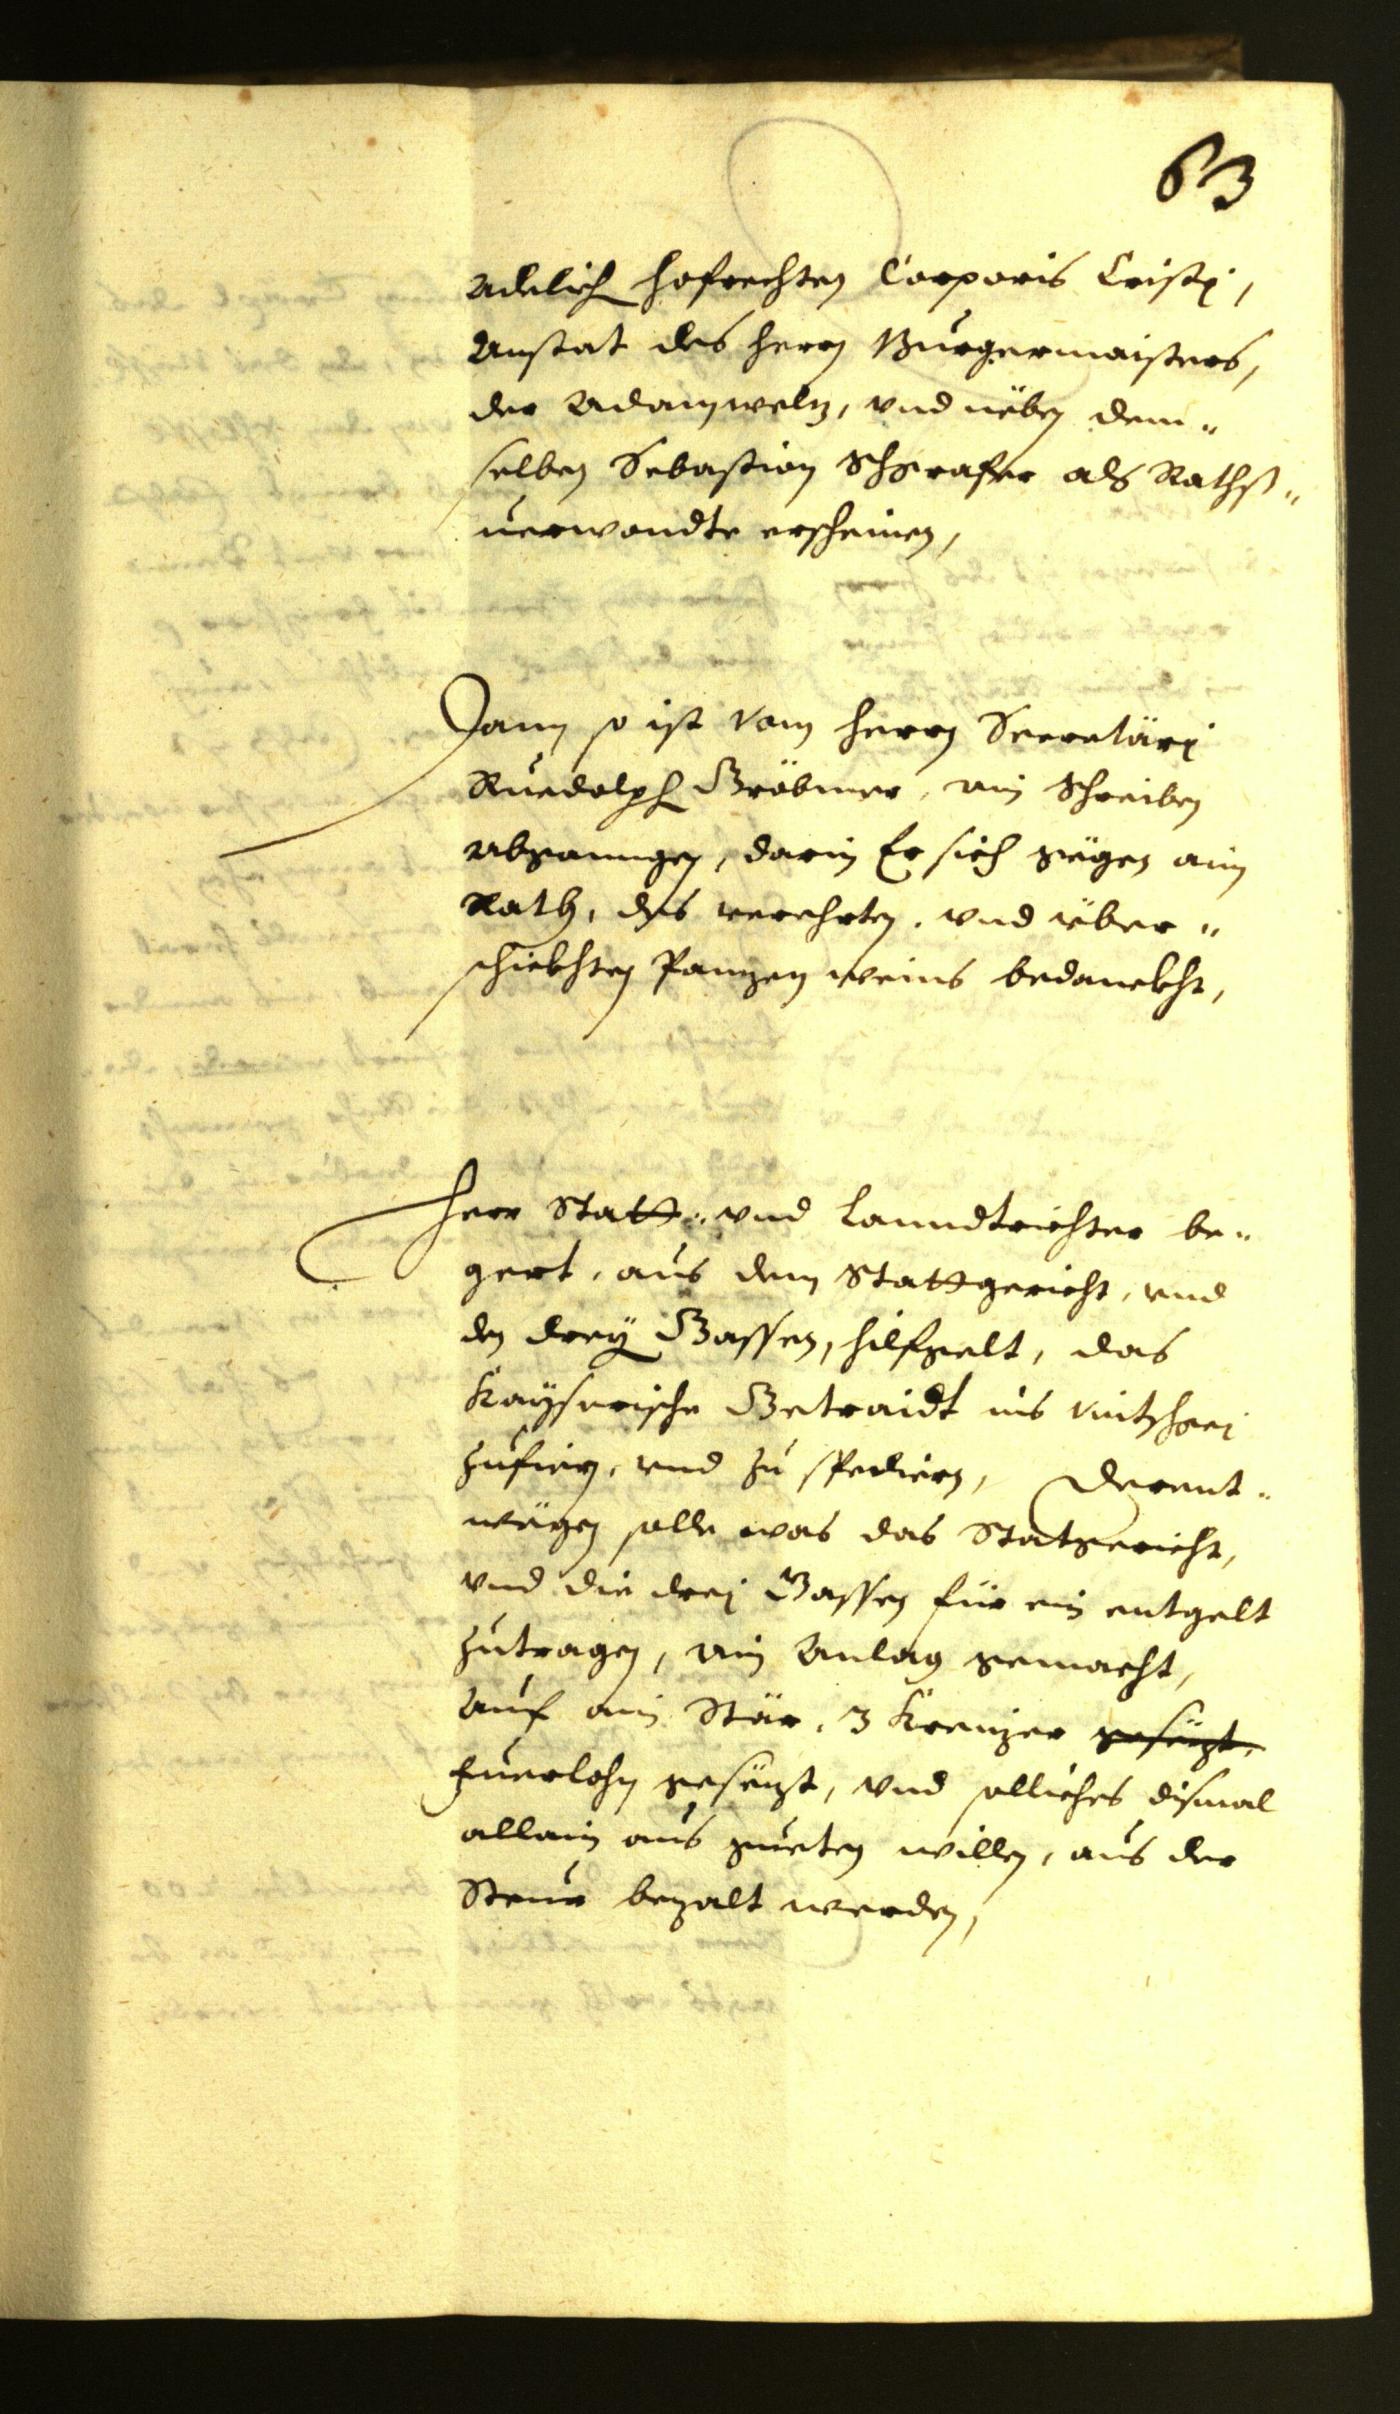 63
Adelich hofrechten Corporis Cristj,
Anstat des herrn Burgermaisters,
der Adam weltz, vnd nëben dem¬
selben Sebastian Schgrafer als Raths¬
verwandte erscheinen,
Dann so ist vom herrn Secretärj
Ruedolph Gröbmer, ain Schreiben
abganngen, darin Er sich gëgen ain
Rath, des verehrten, vnd yber¬
schickhten Panzen weins bedanckht,
Herr Statt- vnd Lanndtrichter be¬
gert, aus dem Stattgericht, vnd
den dreÿ Gassen, hilfgelt, das
Kaÿserische Getraidt ins Vintschgej
zufiern, vnd zu spediern, Derent¬
wëgen solle was das Statgericht,
vnd die drej Gassen für ein entgelt
zutragen, ain Anlag gemacht,
Auf ain Stär, 3 Kreuzer gesëzt,
fuerlohn gesëzt, vnd solliches dismal
allain aus gueten willen, aus der
Steur bezalt werden,